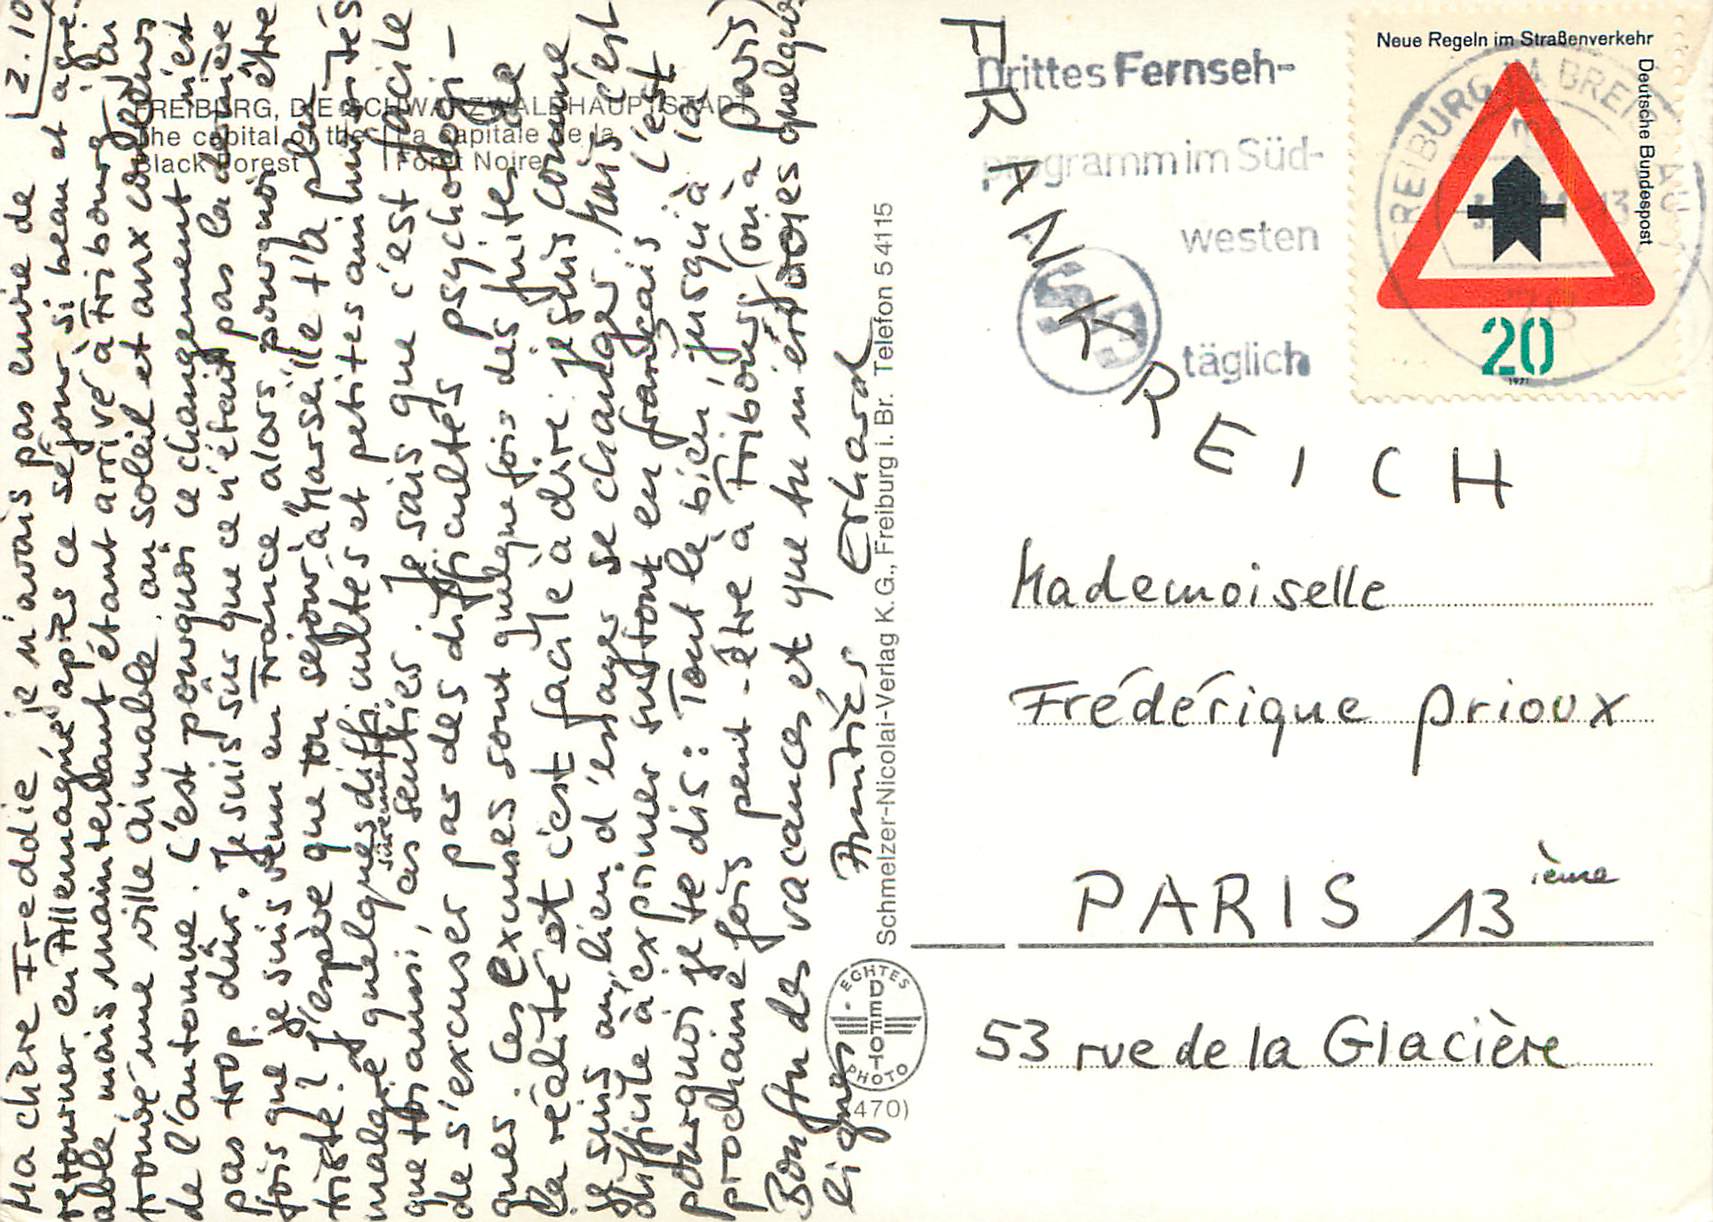 2.10
Ma chère Freddie, je n'avais pas envie de
retourner en Allemagne après ce séjour si beau et agré-
able, mais maintenant étant arrivé à Fribourg, j'ai
trouvé une ville aimable, au soleil et aux couleurs
de l'automne. C'est pourquoi ce changement n'est
pas trop dûr. Je suis sûr que ce n'était pas la dernière
fois que je suis venu en France alors pourquoi être
triste? J'espère que ton séjour à Marseille t'a plu
malgré quelques difficultés et petites animosités
que toi aussi, as senties. Je sais que c'est facile
sûrement
de s'excuser par des difficultés psychologi-
ques. Ces excuses sont quelque fois des fuites de
la réalité et c'est facile à dire: je suis comme
je suis au lieu d'essayer se changer. Mais c'est
difficile à exprimer surtout en français. C'est
pourquoi je te dis: Tout le bien, jusqu'à la
prochaine fois peut-être à Fribourg (ou à Paris)
Bon fin des vacances et que tu m'envoies quelques
lignes
Amitiés Erhard
FREIBURG, DIE SCHWARZWALDHAUPTSTADT
The capital of the
Black Forest
La capitale de la
Forêt Noire
Schmelzer-Nicolai-Verlag K.G., Freiburg i. Br. Telefon 54115
ECHTES
FOTO
PHOTO
(470)
Drittes Fernseh-
programm im Süd-
westen
täglich
S3
Neue Regeln im Straßenverkehr
Deutsche Bundespost
20
1971
FREIBURG IM BREISGAU
78
FRANKREICH
Mademoiselle
Frédérique Prioux
PARIS 13 ième
53 rue de la Glacière